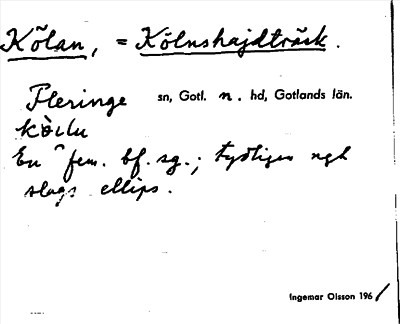 Kölan, = Kölnshajdträsk.
Fleringe sn, Gotl. n. hd, Gotlands län.
kò̀ lu
En fem. bf. sg.; tydligen ngt
slags ellips.
Ingemar Olsson 196/